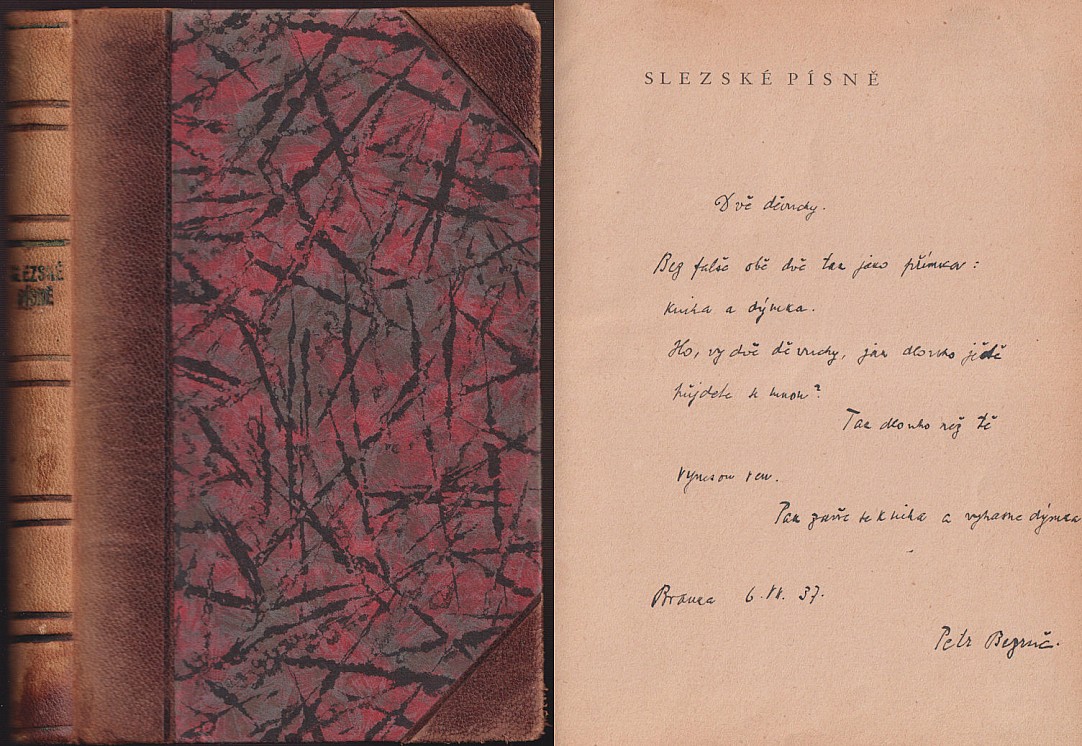 SLEZSKÉ
PÍSNĚ
SLEZSKÉ PÍSNĚ
Dvě děvuchy.
Bez falše obě dvě tak jako přímka:
kniha a dýmka.
Ho, vy dvě děvuchy, jak dlouho ještě
půjdete se mnou?
Tak dlouho než tě
vynesou ven.
Pak zavře se kniha a vyhasne dýmka
Branka 6. 37.
Petr Bezruč.